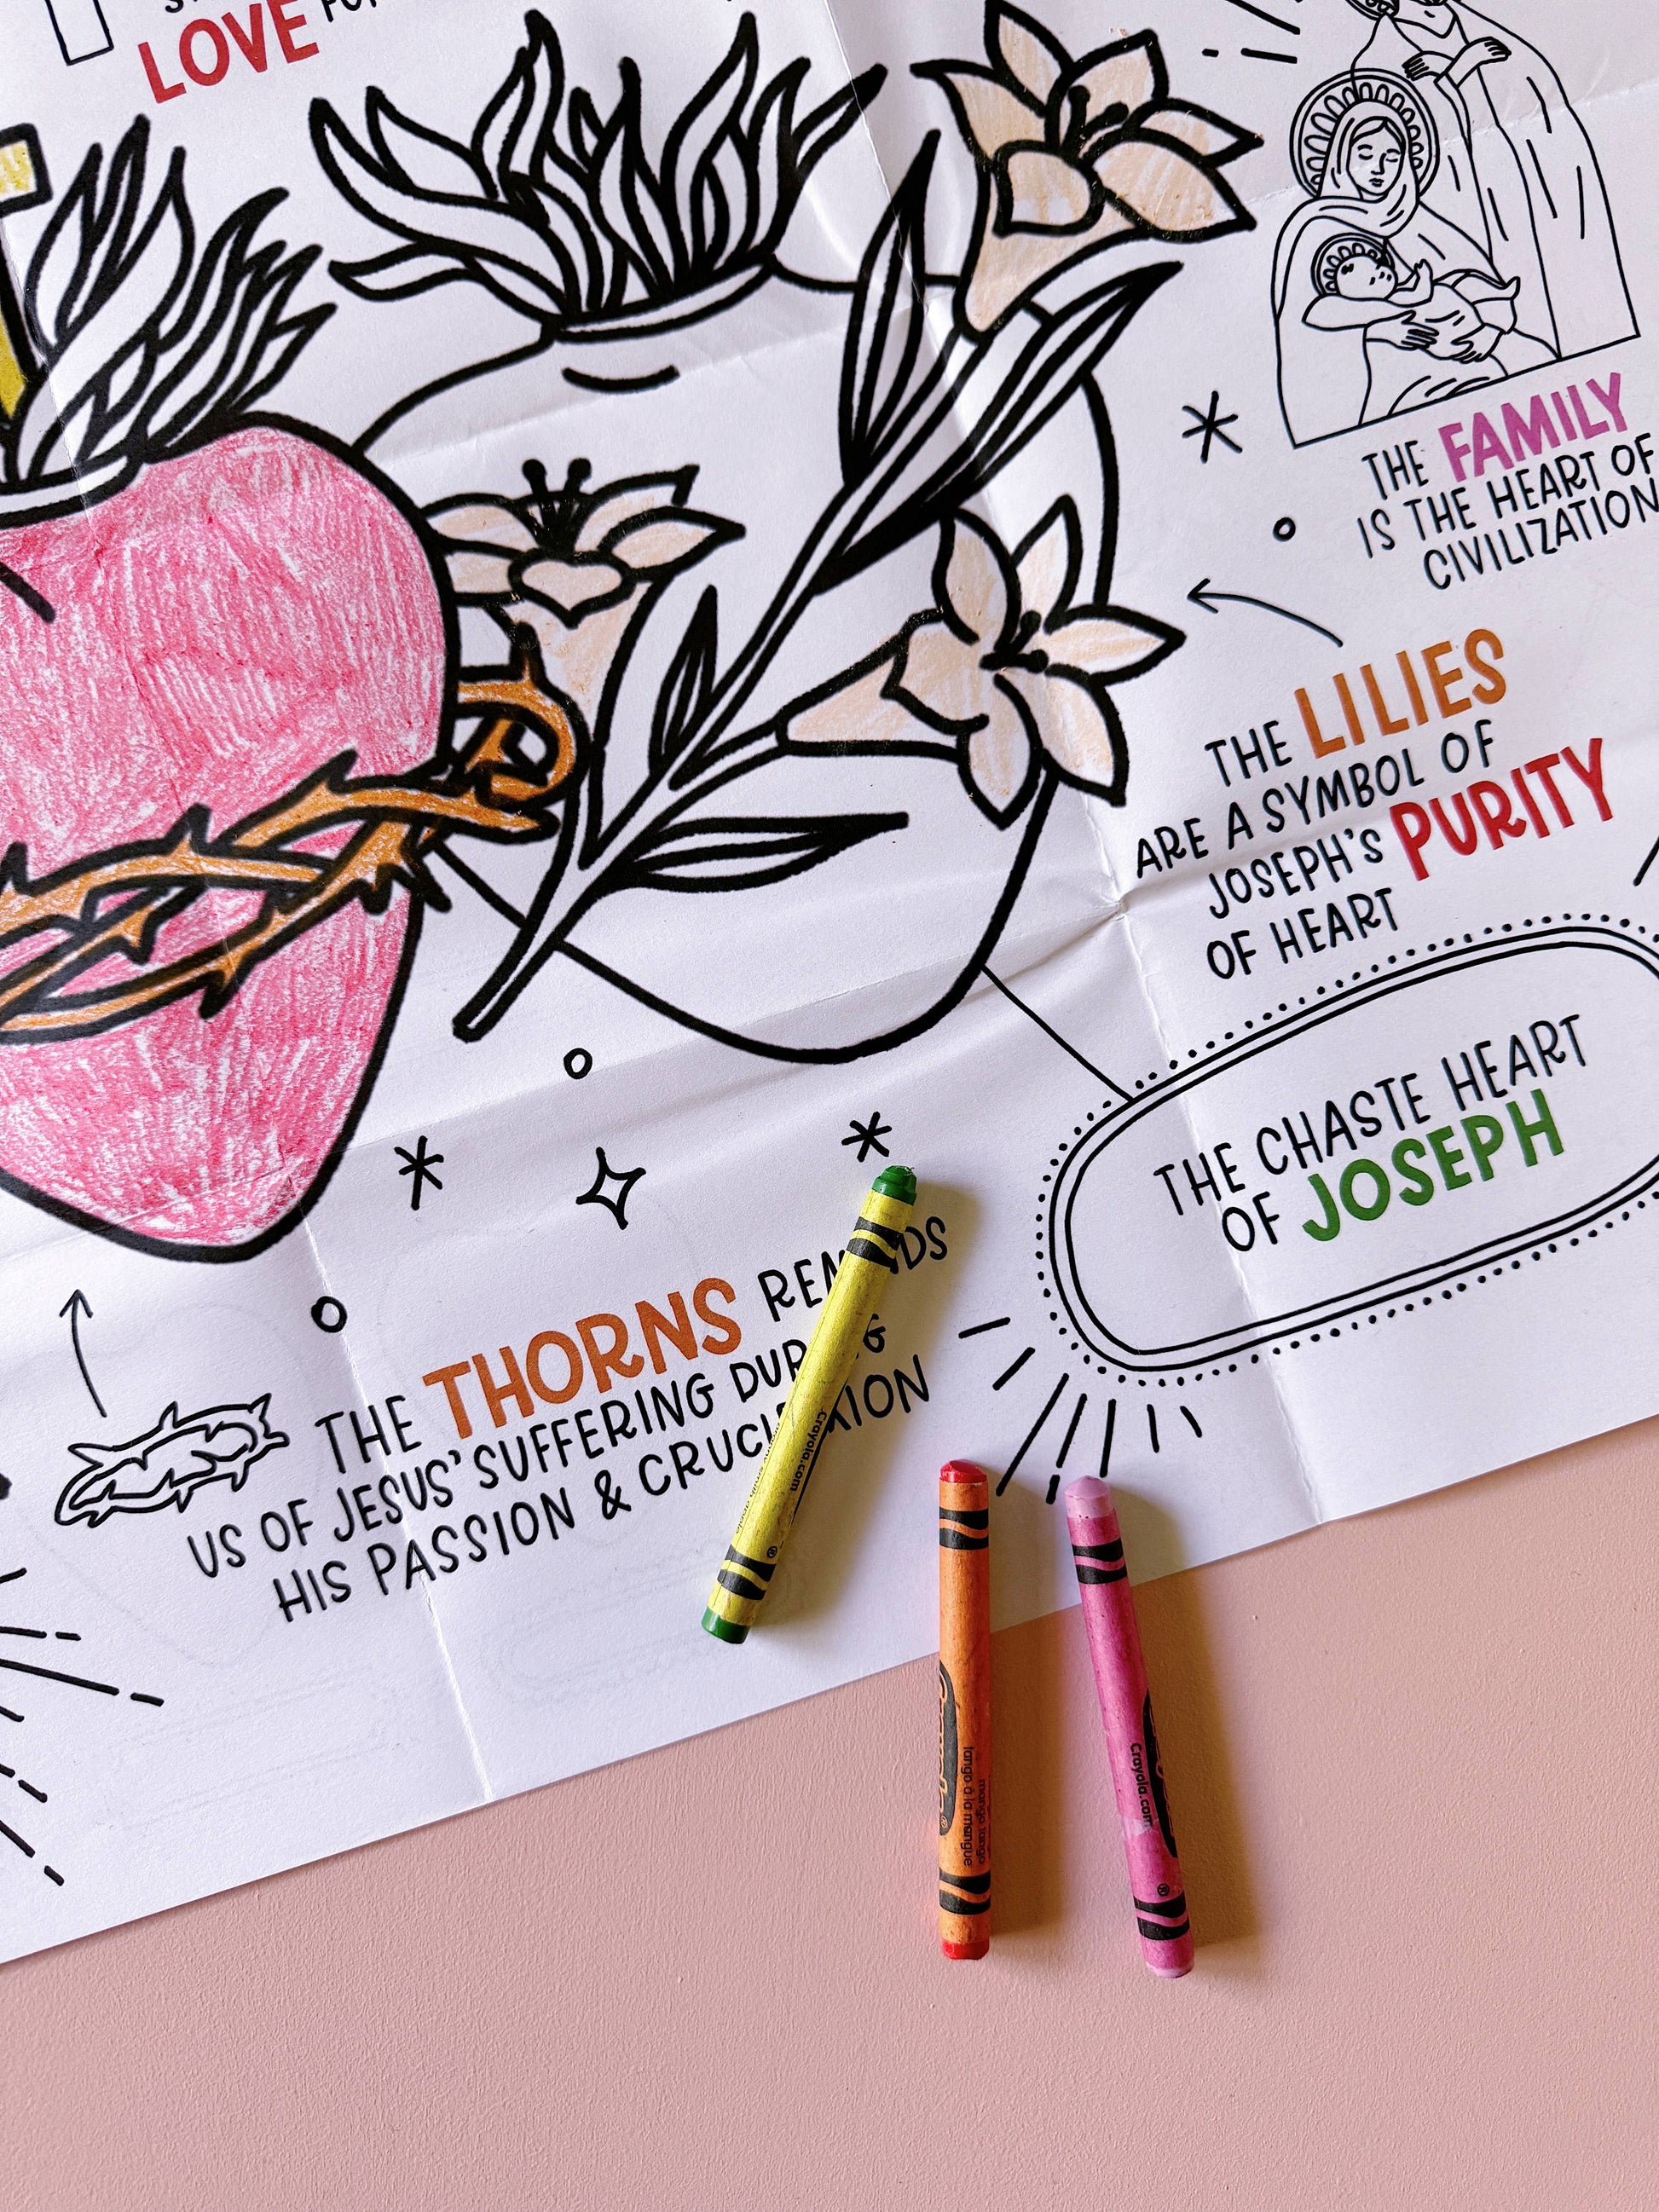 LOVE
THE FAMILY
IS THE HEART OF
CIVILIZATION
THE LILIES
ARE A SYMBOL OF
JOSEPH'S PURITY
OF HEART
THE CHASTE HEART
OF JOSEPH
THE THORNS
US OF JESUS' SUFFERING
HIS PASSION &
Crayola.com
mango tango
tango à la mangue
Crayola.com